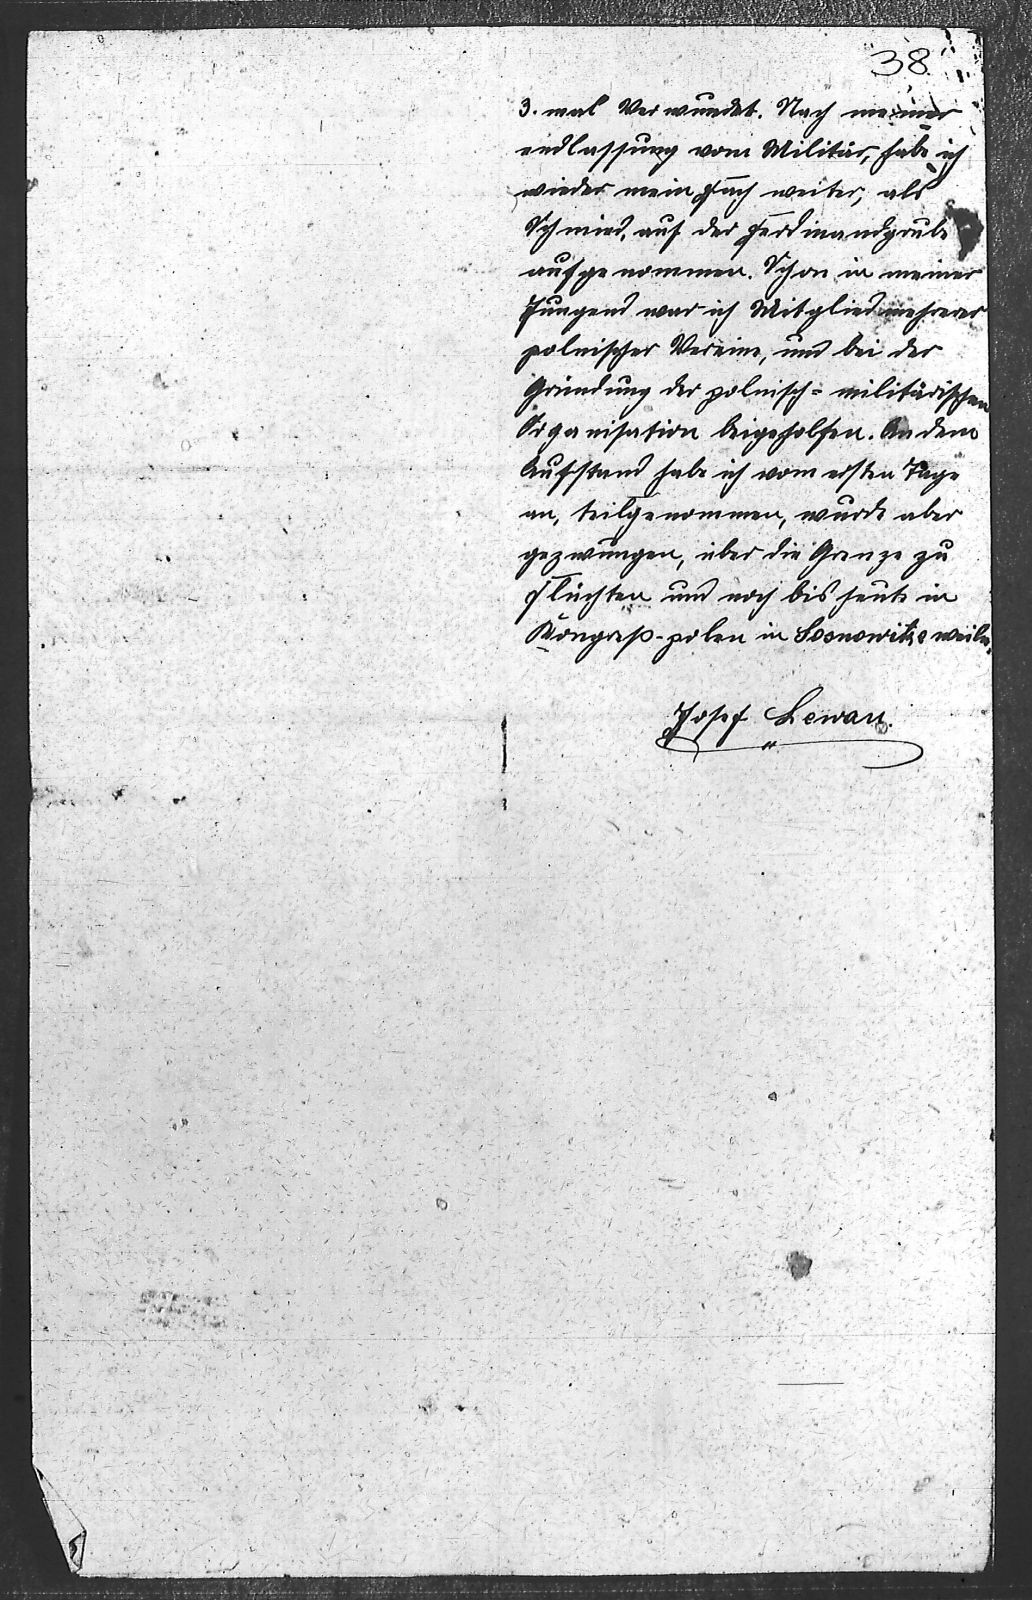 38
3. mal Verwundet. Nach meiner
endlassung vom Militär, habe ich
wieder mein Fach weiter, als
Schmied, auf der Ferdinandgrube
aufgenommen. Schon in meiner
Jungend war ich Mitglied mehrerer
polnischer Vereine, und bei der
Gründung der polnisch= militärischen
Organisation beigeholfen. An dem
Aufstand habe ich vom ersten Tage
an, teilgenommen, wurde aber
gezwungen, über die Grenze zu
flüchten und noch bis heute in
Kongreß-polen in Sosnowitze weile.
Josef Lewan.